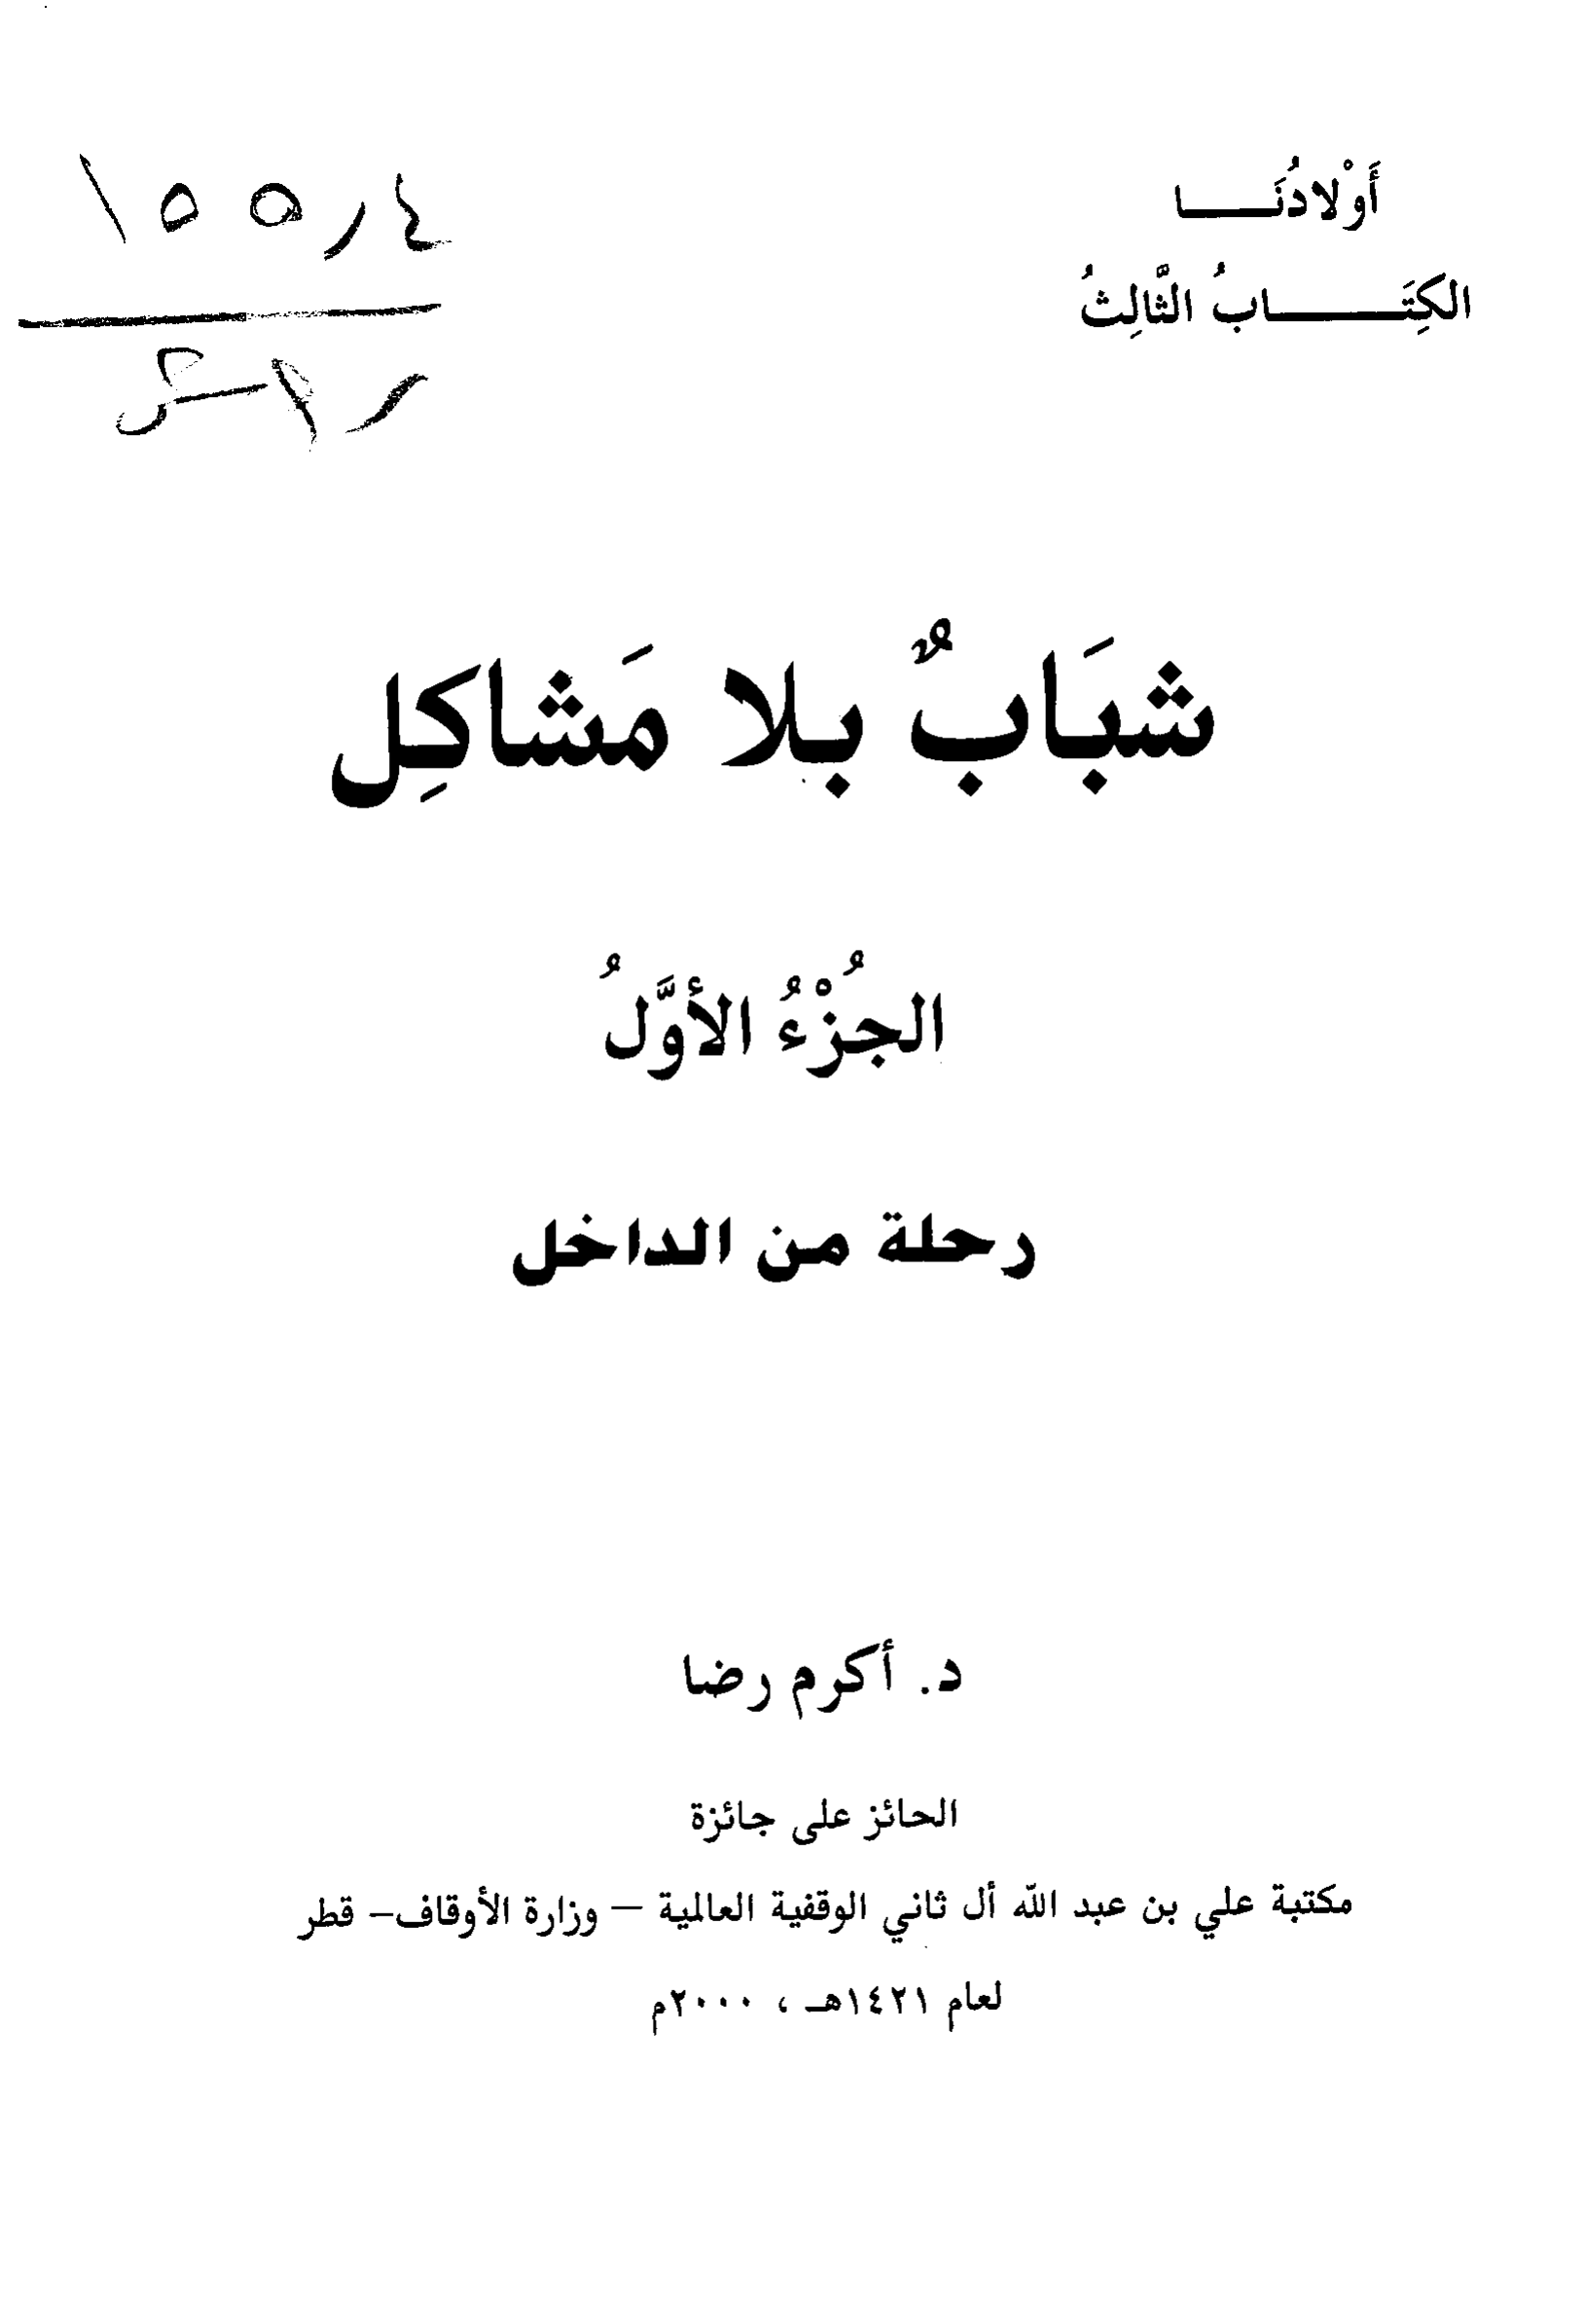 أَوْلادُنَـــــا
الكِتَـــــــابُ الثَّالِثُ
١٥٥,٤
شبَابٌ بلا مَشاكِل
الجُزْءُ الأوَّلُ
رحلة من الداخل
د. أكرم رضا
الحائز على جائزة
مكتبة علي بن عبد الله أل ثاني الوقفية العالمية – وزارة الأوقاف– قطر
لعام ١٤٢١هـ ، ٢٠٠٠م